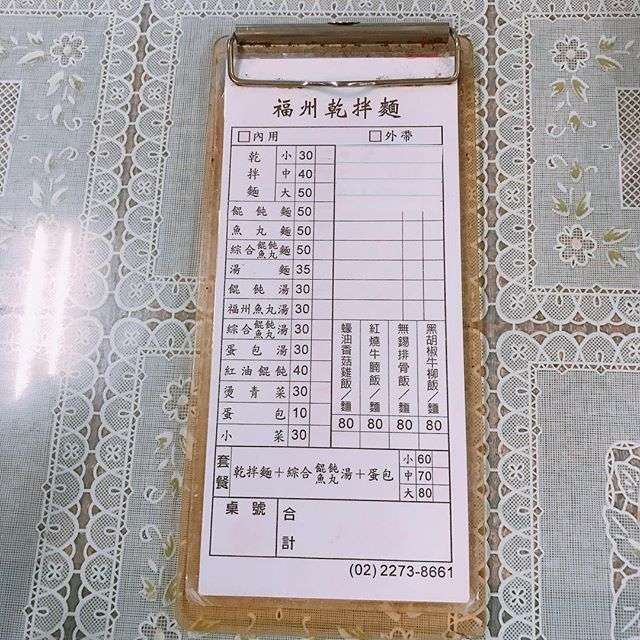 福州乾拌麵
□內用 □外帶
乾拌麵 小 30
中 40
大 50
餛飩麵 50
魚丸麵 50
綜合餛飩魚丸麵 50
湯麵 35
餛飩湯 30
福州魚丸湯 30
綜合餛飩魚丸湯 30
蛋包湯 30
紅油餛飩 40
燙青菜 30
蛋包 10
小菜 30
蠔油香菇雞飯/麵 80
紅燒牛腩飯/麵 80
無錫排骨飯/麵 80
黑胡椒牛柳飯/麵 80
套餐 乾拌麵+綜合餛飩魚丸湯+蛋包 小 60
中 70
大 80
桌號 合計
(02)2273-8661